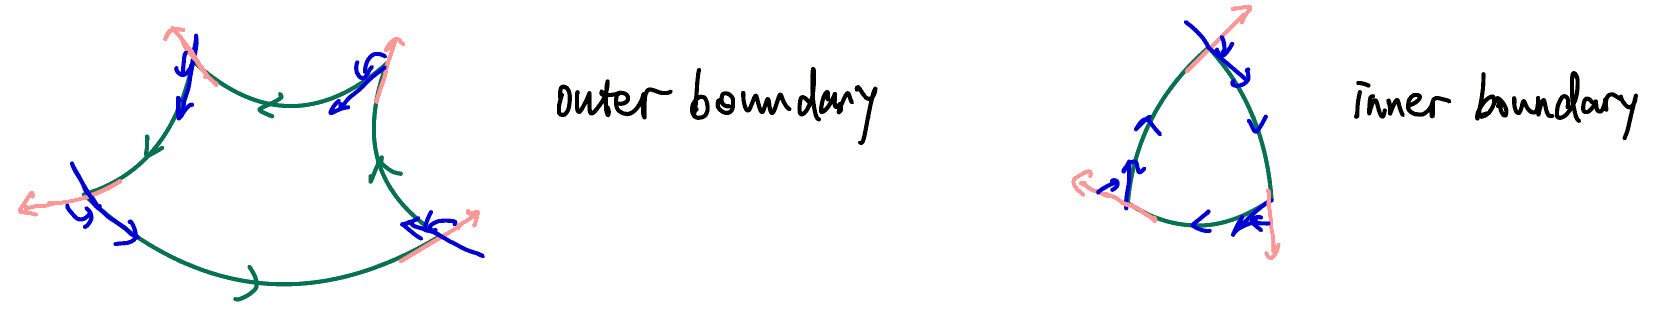 outer boundary
inner boundary